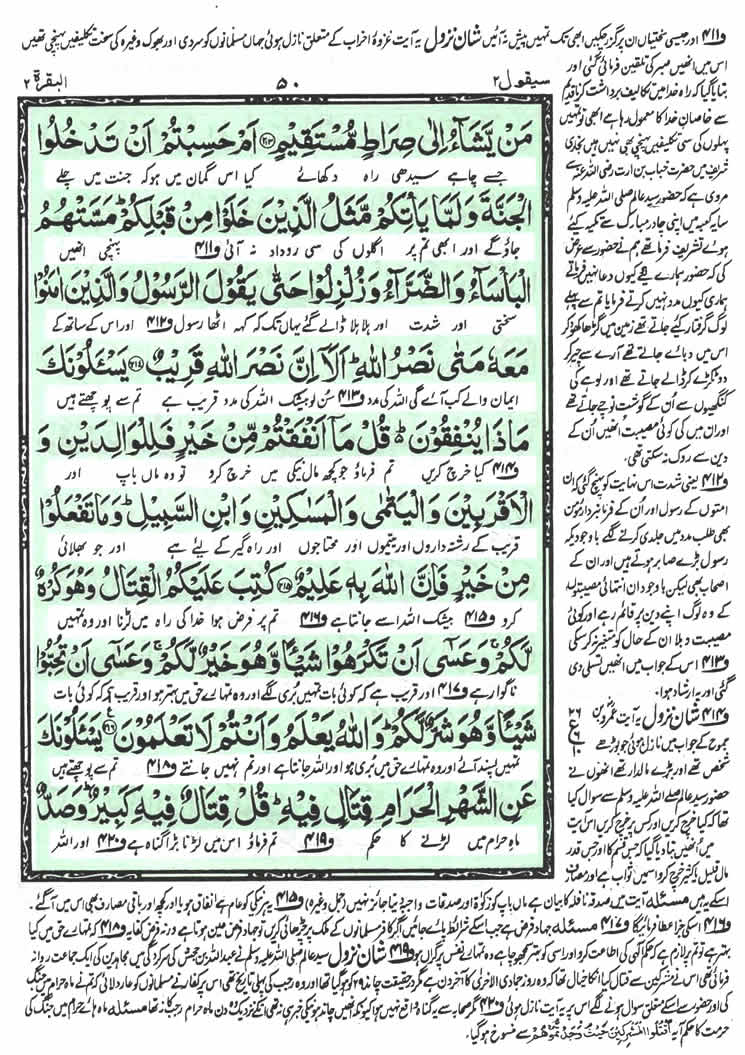 و۴۱۱ اور جیسی سختیاں ان پر گزر چکیں ابھی تک تمہیں پیش نہ آئیں شان نزول یہ آیت غزوۂ احزاب کے متعلق نازل ہوئی جہاں مسلمانوں کو سردی اور بھوک وغیرہ کی سخت تکلیفیں پہنچی تھیں
سیقول ۲
۵۰
البقرۃ ۲
مَنْ يَّشَآءُ اِلٰى صِرَاطٍ مُّسْتَقِيْمٍ ﴿۲۱۳﴾ اَمْ حَسِبْتُمْ اَنْ تَدْخُلُوا
جسے چاہے سیدھی راہ دکھائے کیا اس گمان میں ہو کہ جنت میں چلے
الْجَنَّةَ وَلَمَّا يَاْتِكُمْ مَّثَلُ الَّذِيْنَ خَلَوْا مِنْ قَبْلِكُمْ ؕ مَسَّتْهُمُ
جاؤ گے اور ابھی تم پر اگلوں کی سی روداد نہ آئی و۴۱۱ پہنچی انھیں
الْبَاْسَآءُ وَالضَّرَّآءُ وَزُلْزِلُوْا حَتّٰى يَقُوْلَ الرَّسُوْلُ وَالَّذِيْنَ اٰمَنُوْا
سختی اور شدت اور ہلا ہلا ڈالے گئے یہاں تک کہ کہہ اٹھا رسول و۴۱۲ اور اس کے ساتھ کے
مَعَهٗ مَتٰى نَصْرُ اللّٰهِ ؕ اَلَاۤ اِنَّ نَصْرَ اللّٰهِ قَرِيْبٌ ﴿۲۱۴﴾ يَسْـَٔلُوْنَكَ
ایمان والے کب آئے گی اللہ کی مدد و۴۱۳ سن لو بیشک اللہ کی مدد قریب ہے تم سے پوچھتے ہیں
مَاذَا يُنْفِقُوْنَ ؕ قُلْ مَاۤ اَنْفَقْتُمْ مِّنْ خَيْرٍ فَلِلْوَالِدَيْنِ وَ
و۴۱۴ کیا خرچ کریں تم فرماؤ جو کچھ مال نیکی میں خرچ کرو تو وہ ماں باپ اور
الْاَقْرَبِيْنَ وَالْيَتٰمٰى وَالْمَسٰكِيْنِ وَابْنِ السَّبِيْلِ ؕ وَمَا تَفْعَلُوْا
قریب کے رشتہ داروں اور یتیموں اور محتاجوں اور راہ گیر کے لیے ہے اور جو بھلائی
مِنْ خَيْرٍ فَاِنَّ اللّٰهَ بِهٖ عَلِيْمٌ ﴿۲۱۵﴾ كُتِبَ عَلَيْكُمُ الْقِتَالُ وَهُوَ كُرْهٌ
کرو و۴۱۵ بیشک اللہ اسے جانتا ہے و۴۱۶ تم پر فرض ہوا خدا کی راہ میں لڑنا اور وہ تمہیں
لَّكُمْ ۚ وَعَسٰۤى اَنْ تَكْرَهُوْا شَيْـًٔا وَّهُوَ خَيْرٌ لَّكُمْ ۚ وَعَسٰۤى اَنْ تُحِبُّوْا
ناگوار ہے و۴۱۷ اور قریب ہے کہ کوئی بات تمہیں بری لگے اور وہ تمہارے حق میں بہتر ہو اور قریب ہے کہ کوئی بات
شَيْـًٔا وَّهُوَ شَرٌّ لَّكُمْ ؕ وَاللّٰهُ يَعْلَمُ وَاَنْتُمْ لَا تَعْلَمُوْنَ ﴿۲۱۶﴾ يَسْـَٔلُوْنَكَ
تمہیں پسند آئے اور وہ تمہارے حق میں بری ہو اور اللہ جانتا ہے اور تم نہیں جانتے و۴۱۸ تم سے پوچھتے ہیں
عَنِ الشَّهْرِ الْحَرَامِ قِتَالٍ فِيْهِ ؕ قُلْ قِتَالٌ فِيْهِ كَبِيْرٌ ؕ وَصَدٌّ
ماہ حرام میں لڑنے کا حکم و۴۱۹ تم فرماؤ اس میں لڑنا بڑا گناہ ہے و۴۲۰ اور اللہ
اس میں انھیں صبر کی تلقین فرمائی گئی اور
بتایا گیا کہ راہ خدا میں تکالیف برداشت کرنا قدیم
سے خاصان خدا کا معمول رہا ہے ابھی تو تمہیں
پہلوں کی سی تکلیفیں پہنچی بھی نہیں ہیں بخاری
شریف میں حضرت خباب بن ارت رضی اللہ عنہ سے
مروی ہے کہ حضور سید عالم صلی اللہ علیہ وسلم
سایہ کعبہ میں اپنی چادر مبارک سے تکیہ کئے
ہوئے تشریف فرما تھے ہم نے حضور سے عرض
کی کہ حضور ہمارے لئے کیوں دعا نہیں فرماتے
ہماری کیوں مدد نہیں کرتے فرمایا تم سے پہلے
لوگ گرفتار کئے جاتے تھے زمین میں گڑھا کھود کر
اس میں دبائے جاتے تھے آرے سے چیر کر
دو ٹکڑے کر ڈالے جاتے تھے اور لوہے کی
کنگھیوں سے ان کے گوشت نوچے جاتے تھے
اور ان میں کی کوئی مصیبت انھیں ان کے
دین سے روک نہ سکتی تھی۔
و۴۱۲ یعنی شدت اس نہایت کو پہنچ گئی کہ ان
امتوں کے رسول اور ان کے فرمانبردار مومن
بھی طلب مدد میں جلدی کرنے لگے باوجودیکہ
رسول بڑے صابر ہوتے ہیں اور ان کے
اصحاب بھی لیکن باوجود ان انتہائی مصیبتوں
کے وہ لوگ اپنے دین پر قائم رہے اور کوئی
مصیبت و بلا ان کے حال کو متغیر نہ کر سکی
و۴۱۳ اس کے جواب میں انھیں تسلی دی
گئی اور یہ ارشاد ہوا۔
و۴۱۴ شان نزول یہ آیت عمرو بن
جموح کے جواب میں نازل ہوئی جو بوڑھے
شخص تھے اور بڑے مالدار تھے انھوں نے
حضور سید عالم صلی اللہ علیہ وسلم سے سوال کیا
تھا کہ کیا خرچ کریں اور کس پر خرچ کریں اس آیت
میں انھیں بتا دیا گیا کہ جس قسم کا اور جس قدر
مال قلیل یا کثیر خرچ کرو اس میں ثواب ہے اور مصارف
اسکے یہ ہیں مسئلہ آیت میں صدقہ نافلہ کا بیان ہے ماں باپ کو زکوٰۃ اور صدقات واجبہ دینا جائز نہیں (جمل وغیرہ) و۴۱۵ یہ ہر نیکی کو عام ہے انفاق ہو یا اور کچھ اور باقی مصارف بھی اس میں آ گئے۔
و۴۱۶ اسکی جزا عطا فرمائیگا و۴۱۷ مسئلہ جہاد فرض ہے جب اسکے شرائط پائے جائیں اگر کافر مسلمانوں کے ملک پر چڑھائی کریں تو جہاد فرض عین ہوتا ہے ورنہ فرض کفایہ و۴۱۸ کہ تمہارے حق میں کیا
بہتر ہے تو تم پر لازم ہے کہ حکم الٰہی کی اطاعت کرو اور اسی کو بہتر سمجھو چاہے وہ تمہارے نفس پر گراں ہو و۴۱۹ شان نزول سید عالم صلی اللہ علیہ وسلم نے عبداللہ بن جحش کی سرکردگی میں مجاہدین کی ایک جماعت روانہ
فرمائی تھی اس نے مشرکین سے قتال کیا انکا خیال تھا کہ وہ روز جمادی الاخریٰ کا آخر دن ہے مگر درحقیقت چاند ۲۹ کو ہو گیا تھا اور وہ رجب کی پہلی تاریخ تھی اس پر کفار نے مسلمانوں کو عار دلائی کہ تم نے ماہ حرام میں جنگ
کی اور حضور سے اسکے متعلق سوال ہونے لگے اس پر یہ آیت نازل ہوئی و۴۲۰ مگر صحابہ سے یہ گناہ واقع نہیں ہوا کیونکہ انھیں چاند ہونیکی خبر ہی نہ تھی انکے نزدیک وہ دن ماہ حرام رجب کا نہ تھا مسئلہ ماہ ہائے حرام میں جنگ کی
حرمت کا حکم آیہ اُقْتُلُوا الْمُشْرِكِيْنَ حَيْثُ وَجَدْتُّمُوْهُمْ سے منسوخ ہو گیا۔